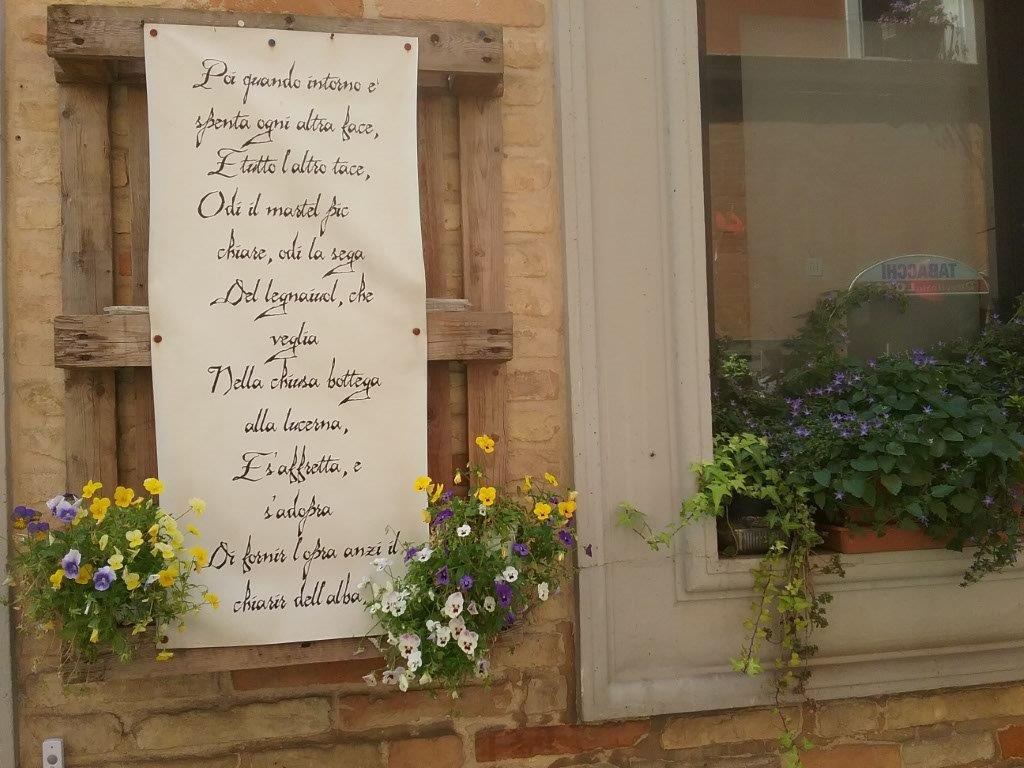 Poi quando intorno e'
spenta ogni altra face,
E tutto l'altro tace,
Odi il martel pic
chiare, odi la sega
Del legnaiuol, che
veglia
Nella chiusa bottega
alla lucerna,
E s'affretta, e
s'adopra
Di fornir l'opra anzi il
chiarir dell'alba.
TABACCHI